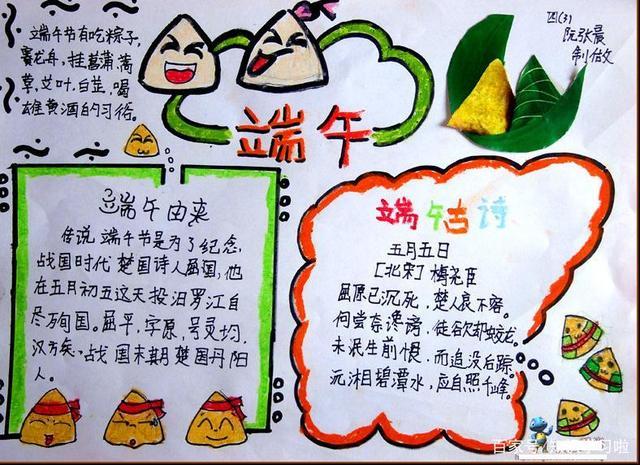 端午节有吃粽子,
赛龙舟,挂菖蒲蒿
草,艾叶,白芷,喝
雄黄酒的习俗。
四(3)
阮张晨
制做
端午
端午由来
传说端午节是为了纪念,
战国时代楚国诗人屈国,他
在五月初五这天投汨罗江自
尽殉国。屈平,字原,号灵均,
汉方矣、战国末期楚国丹阳
人。
端午古诗
五月五日
[北宋]梅尧臣
屈原已沉死,楚人哀不容。
何尝奈谗谤,徒欲却蛟龙。
未泯生前恨,而追没后踪。
沅湘碧潭水,应自照千峰。
百家号